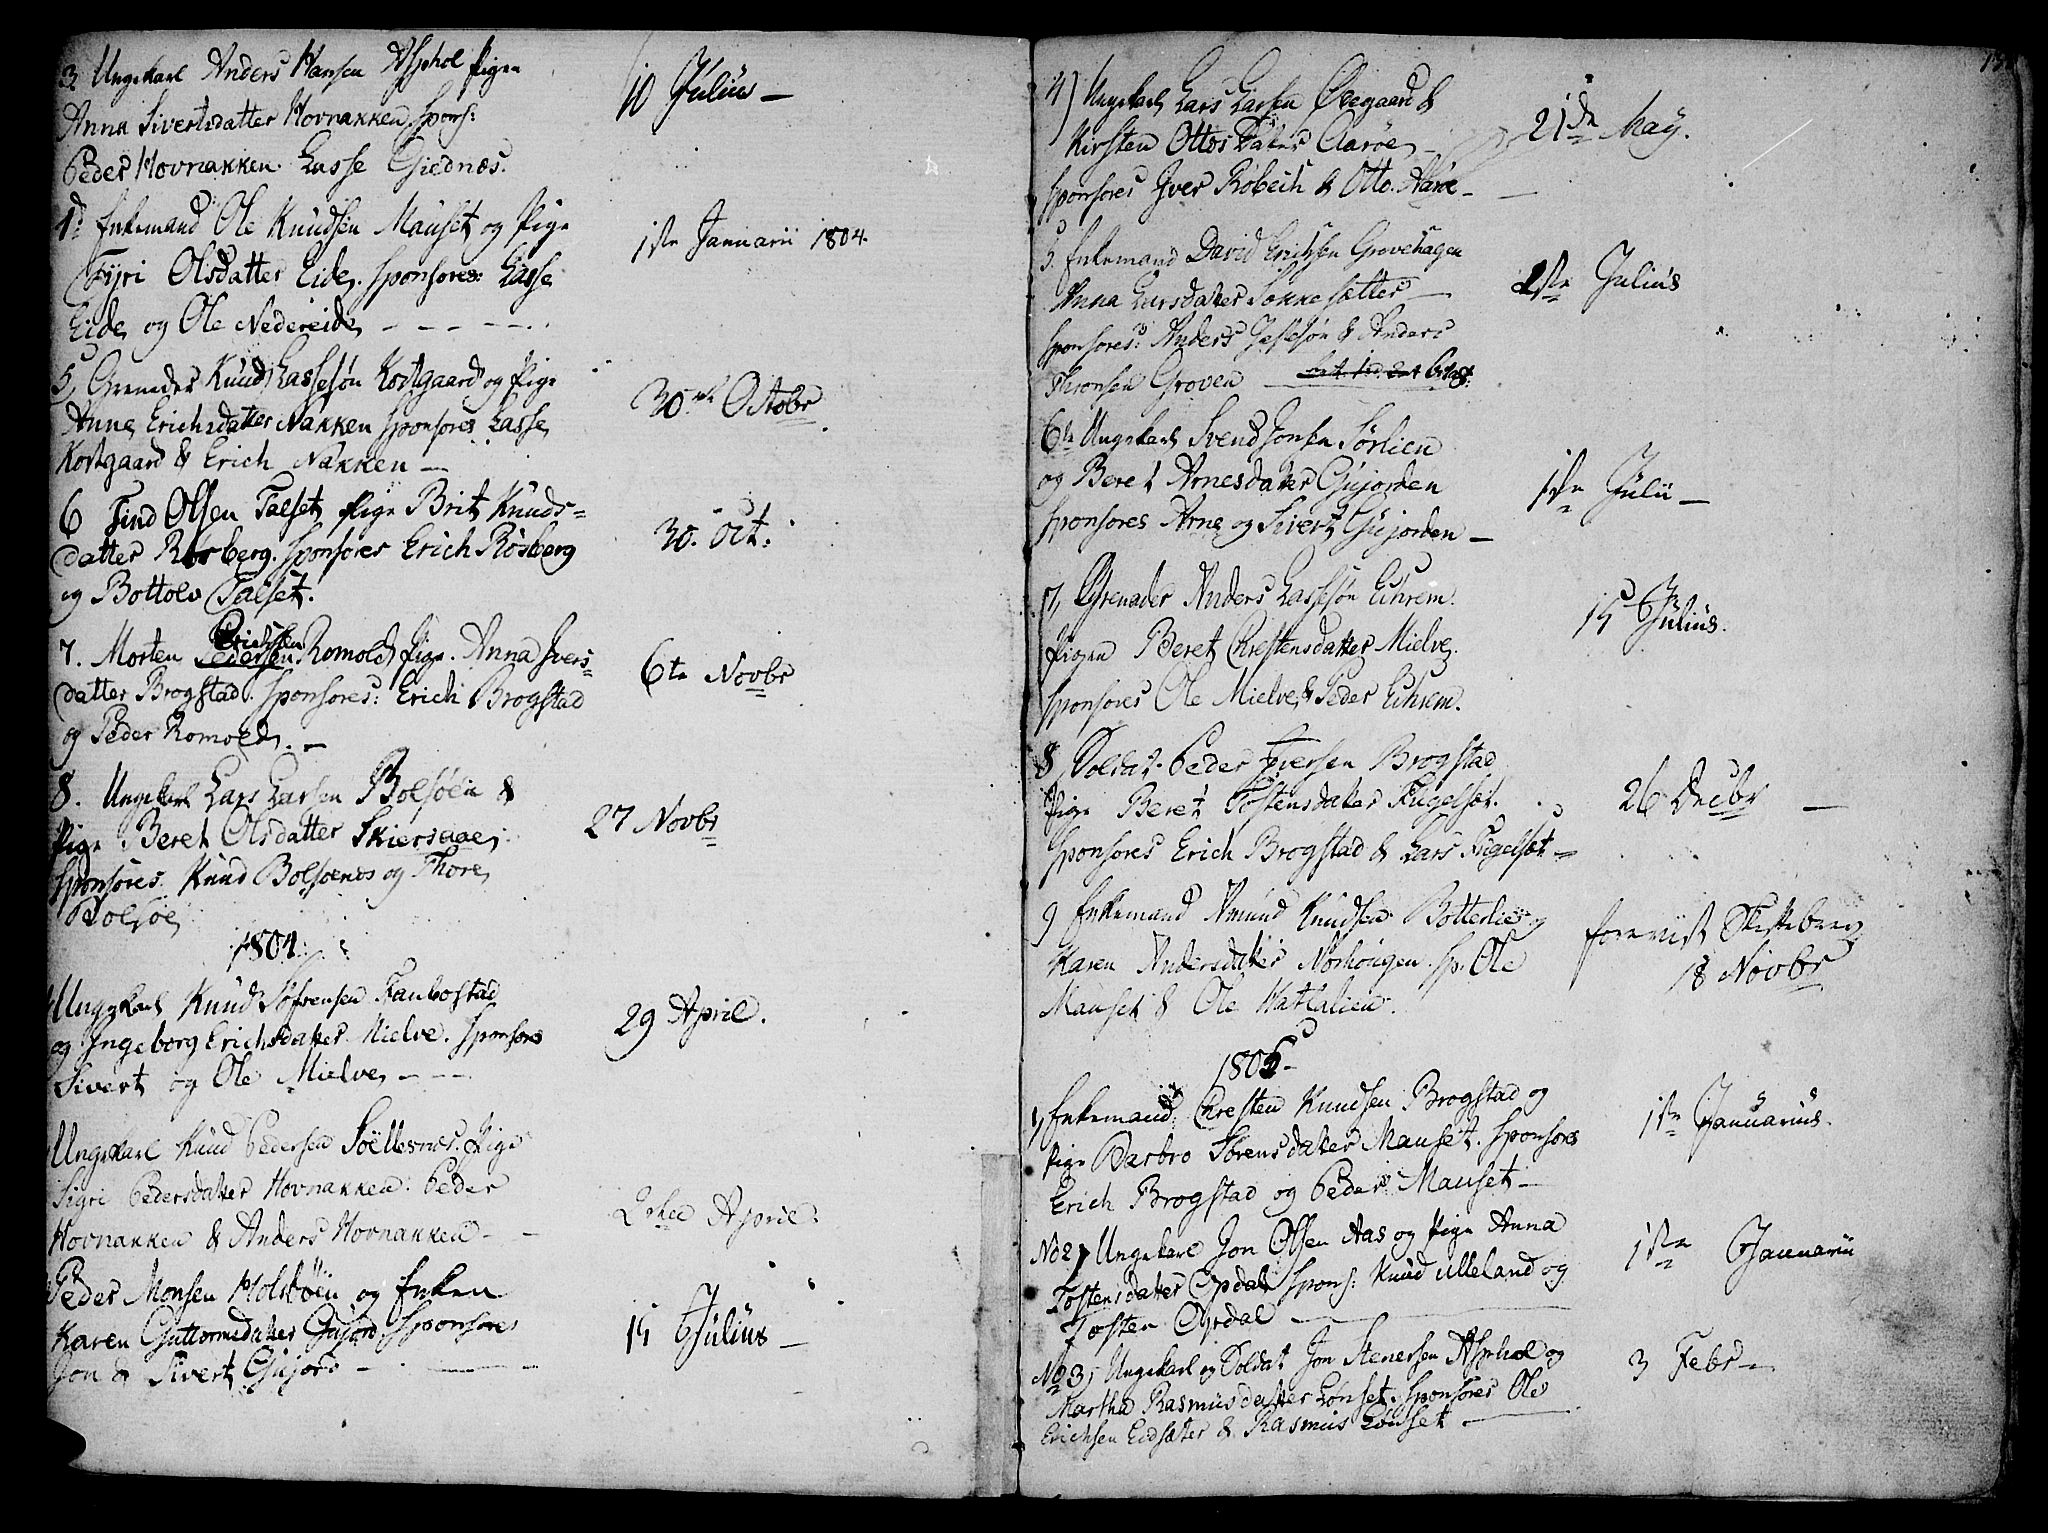 3. Ungekarl Anders Hansen Asphol Pigen
Anna Sivertsdatter Hovnakken Spons:
Peder Hovnakken. Lasse Giednæs.
10 Julius —
1. Enkemand Ole Knudsen Mauset og Pige
Olsdatter Eide. Sponsores: Lasse
Eide og Ole Nedereide
1ste Januarii 1804.
5, Grenader Knud Lassesøn Kortgaard og Pige
Anne Erichsdatter Nakken Sponsores Lasse
Kortgaard & Erich Nakken —
30 Octobr
6 Find Olsen Talset Pige Brit Knuds=
datter Røsberg. Sponsores Erich Røsberg
og Bottolv Talset.
30. Oct:
7. Morten Erichsen Romold Pige. Anna Ivers=
datter Brogstad. Sponsores: Erich Brogstad
og Peder Romold. —
6te Novbr
8. Ungekarl Lars Larsen Bolsøen &
Pige Beret Olsdatter Skiersaae.
Sponsores. Knud Bolsøenes og Thore
Bolsøe
27 Novbr
1804.
Ungekarl Knud Søfrensen Faubostad
og Ingeborg Erichsdatter Mielve. Sponsores
Sivert og Ole Mielve
29 April.
Ungekarl Knud Pedersen Søellesnæs. Pige
Sigri Pedersdatter Hovnakken. Peder
Hovnakken & Anders Hovnakken
April.
Peder Monsen Holsbøen og Enken
Karen Guttormsdatter Gujord Sponsores
Jon & Sivert Gujord
15 Julius —
4) Ungekarl Lars Larsen Øvegaard &
Kirsten Ottosdatter Aarøe
Sponsores Iver Røbech & Otto Aarøe
21de May.
5. Enkemand David Erichsen Grovehagen
Anna Larsdatter Sokkesætter
Sponsores: Anders Jessesøn & Anders
Thronsen Groven
1ste Julius
6te Ungekarl Svend Jonsen Sørlien
og Beret Arnesdatter Gujorden
Sponsores Arne og Sivert Gujorden —
1ste Julii —
7, Grenader Anders Lassesøn Euhrem.
Pigen Beret Chrestensdatter Mielve.
Sponsores Ole Mielve & Peder Euhrem.
15 Julius.
8, Soldat. Peder Iversen Brogstad
Pige Beret Tostensdatter Fugelset.
Sponsores Erich Brogstad & Lars Fugelset
26 Decbr —
9 Enkemand Amund Knudsen Botterlie og
Karen Andersdatter Norhougen. Sp. Ole
Mauset & Ole Hatlalien.
foreviist
18 Novbr
1805
1, Enkemand Chresten Knudsen Brogstad og
Pige Barbro Sørensdatter Mauset. Sponsores
Erich Brogstad og Peder Mauset
1ste Januarius.
No 2, Ungekarl Jon Olsen Aas og Pige Anna
Tostensdatter Opdal Spons: Knud Ulleland og
Tosten Opdal
1ste Januarii
No 3, Ungekarl og Soldat Jon Stenersen Asphol og
Martha Rasmusdatter Lønset. Sponsores Ole
Erichsen Eidsæter & Rasmus Lønset
3 Febr